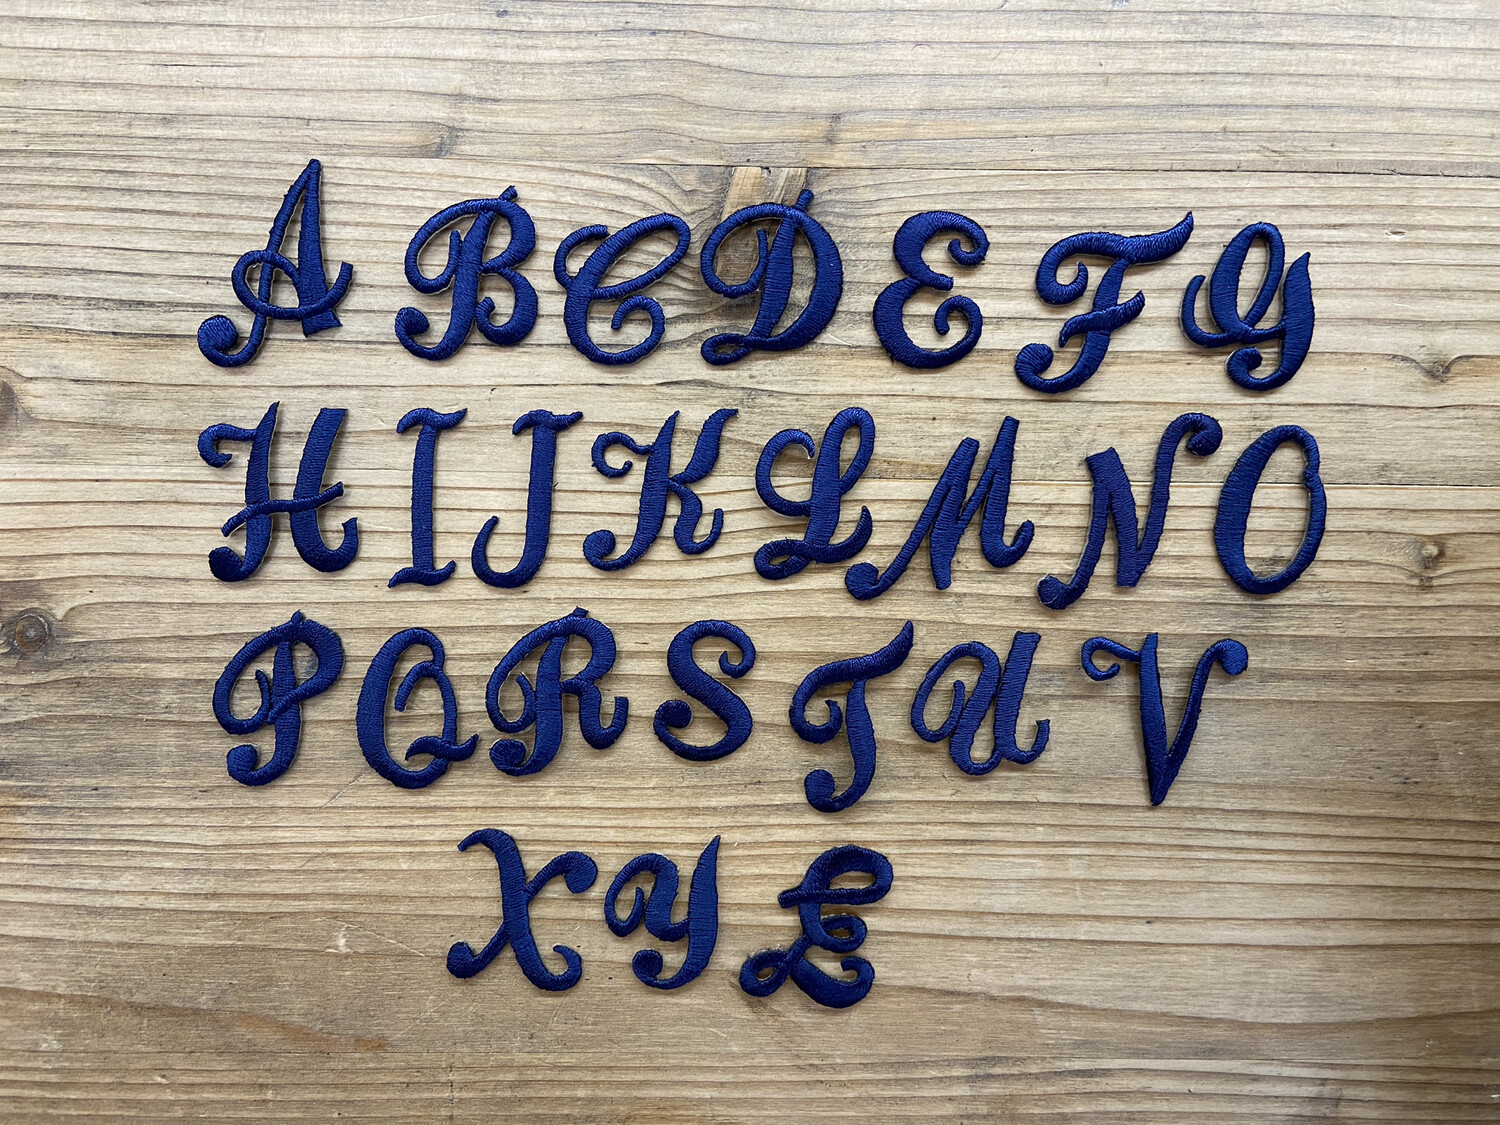 A B C D E F G
H I J K L M N O
P Q R S T U V
X Y Z